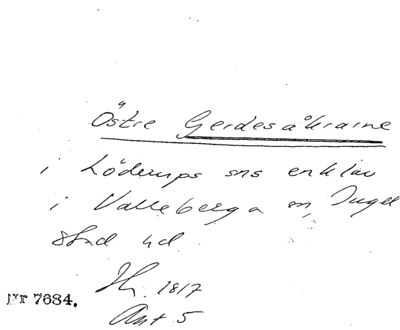 Östre Gerdesåkrarne
i Löderups sns enklav
i Valleberga sn, Ingel
stad hd.
1817
Akt 5
Nr 7684.